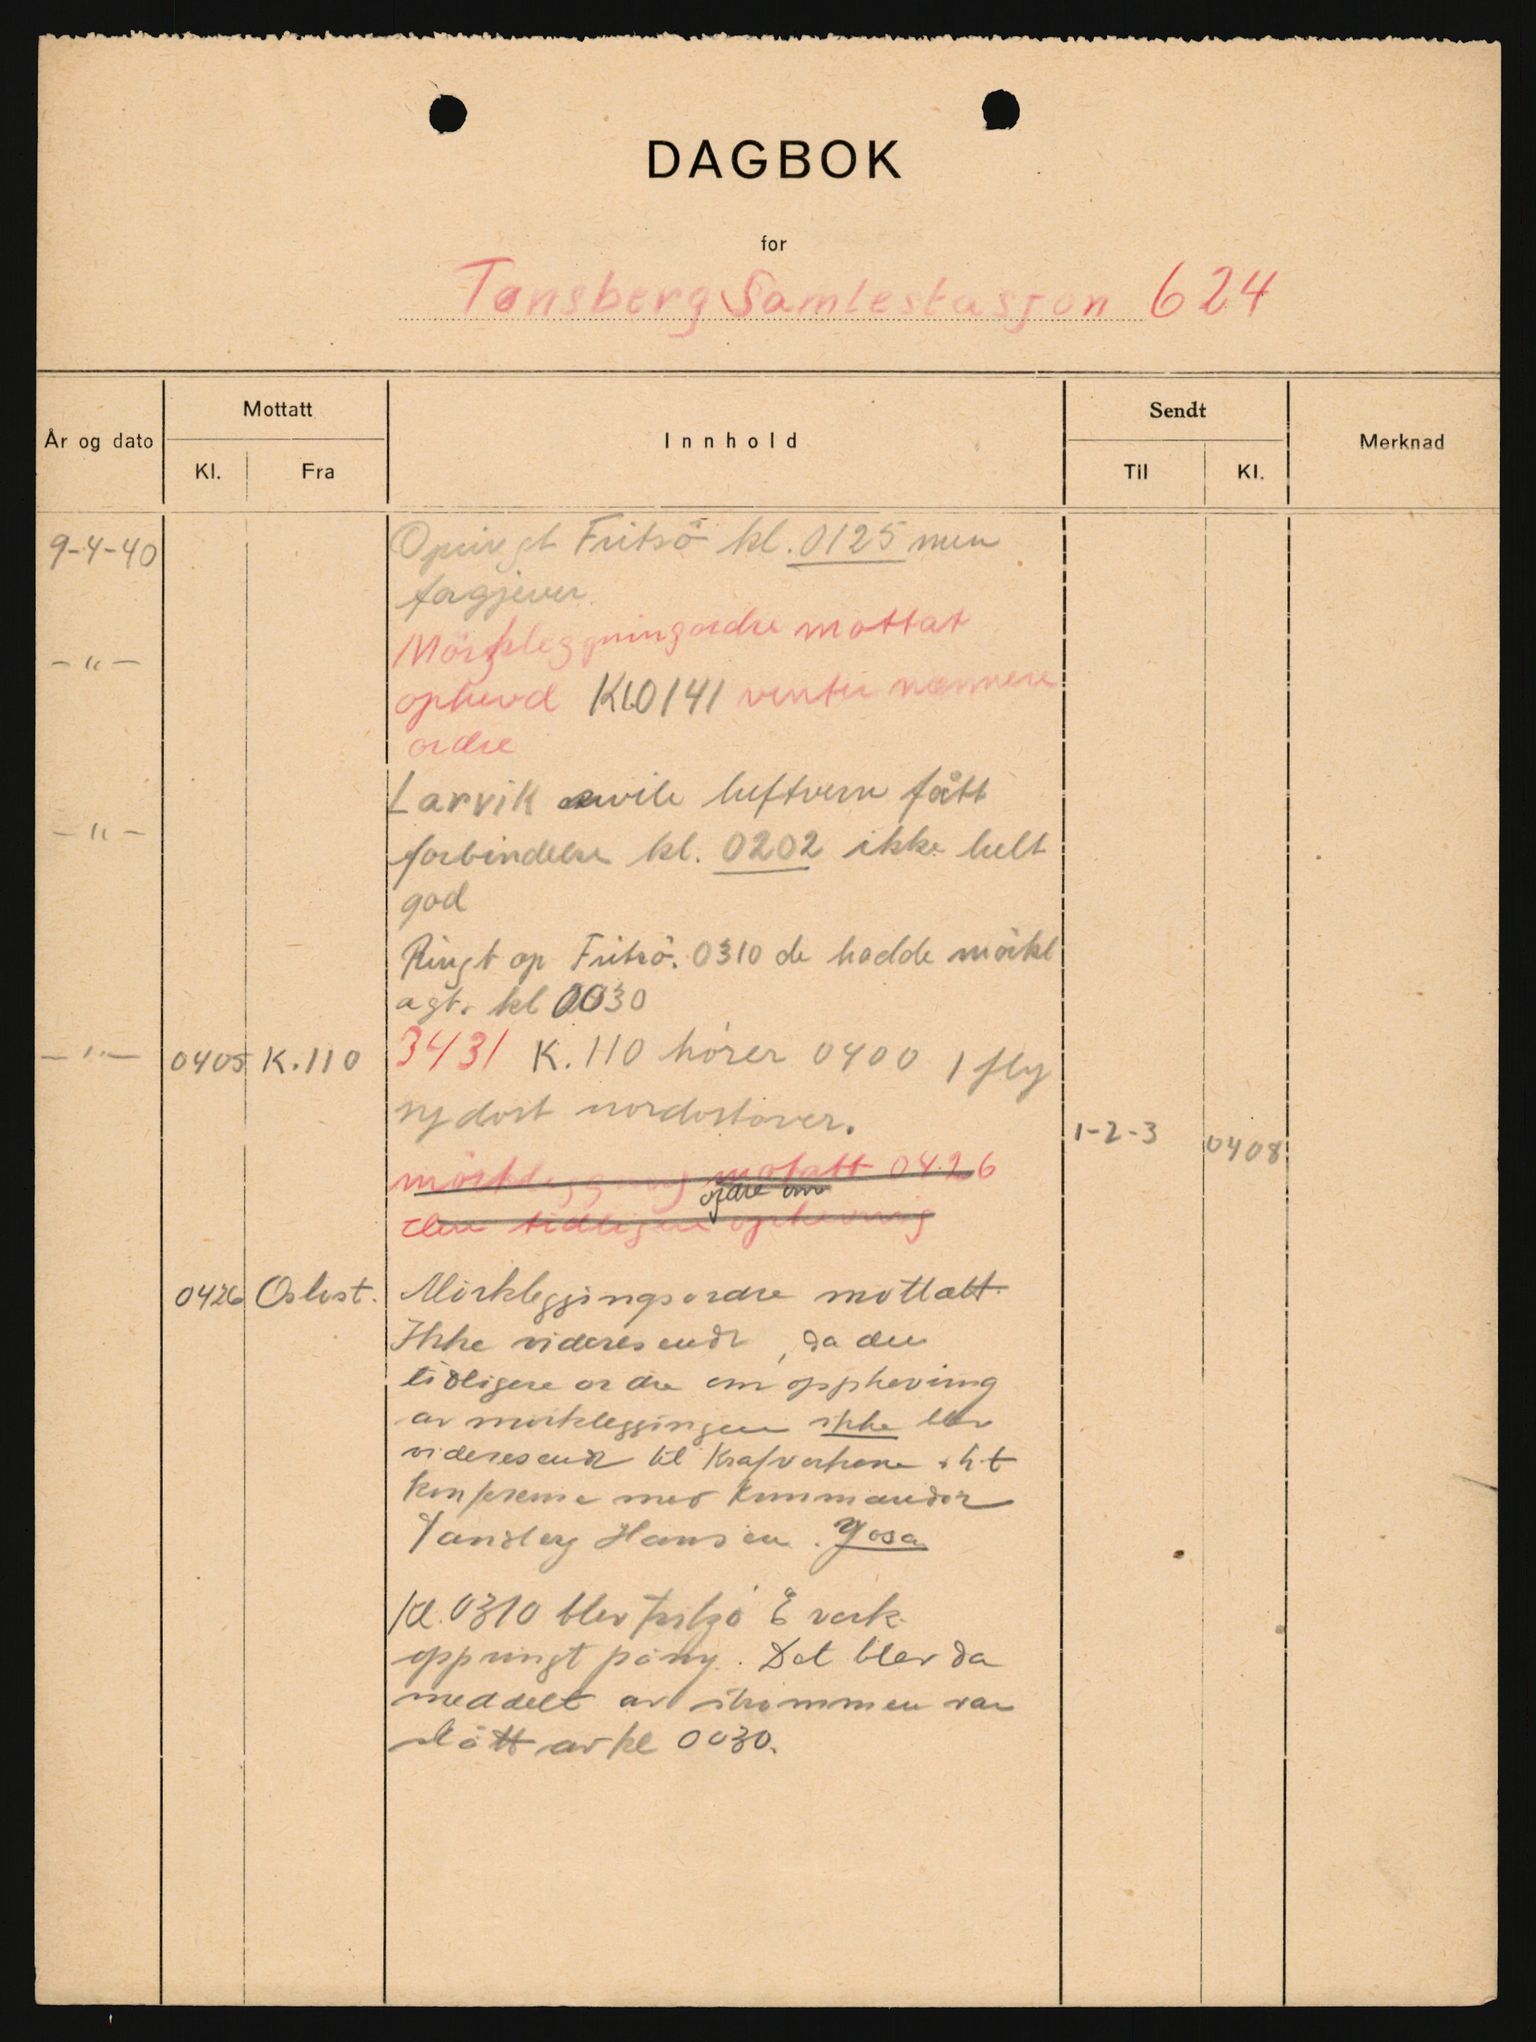 DAGBOK
for
Tønsberg Samlestasjon 624
År og dato
Mottatt
Kl.
Fra
Innhold
Sendt
Til
Kl.
Merknad
9-4-40
Opringt Fritsö kl. 0125 men
forgjeves.
-"-
Mörkleggningordre mottat
ophevd Kl 0141 venter nærmere
ordre
-"-
Larvik sivile luftvern fått
forbindelse kl. 0202 ikke helt
god
Ringt op Fritsö. 0310 de hadde mörkl
agt. kl 0030
-"- 0405 K.110 3431 K.110 hører 0400 1 fly
sydost nordostover.
1-2-3 0408
mörklegging motatt 0426
ordre om
den tidligere ophevning
0426 Oslost. Mörkleggingsordre mottatt.
Ikke videresendt, da den
tidligere ordre om oppheving
av mörkleggingen ikke blev
videresendt til Krafverkene
konferense med Kommandör
Hansen.
Kl. 0310 blev Fritzö E verk
oppringt påny. Det blev da
meddelt av strömmen var
slått av kl 0030.